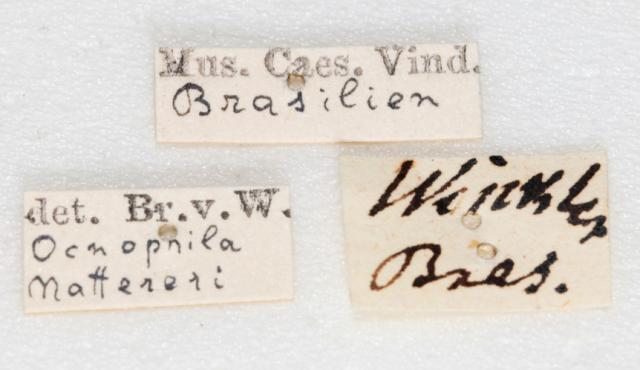 Mus. Caes. Vind.
Brasilien
det. Br.v.W.
Ocnophila
Nattereri
Winkler
Bras.